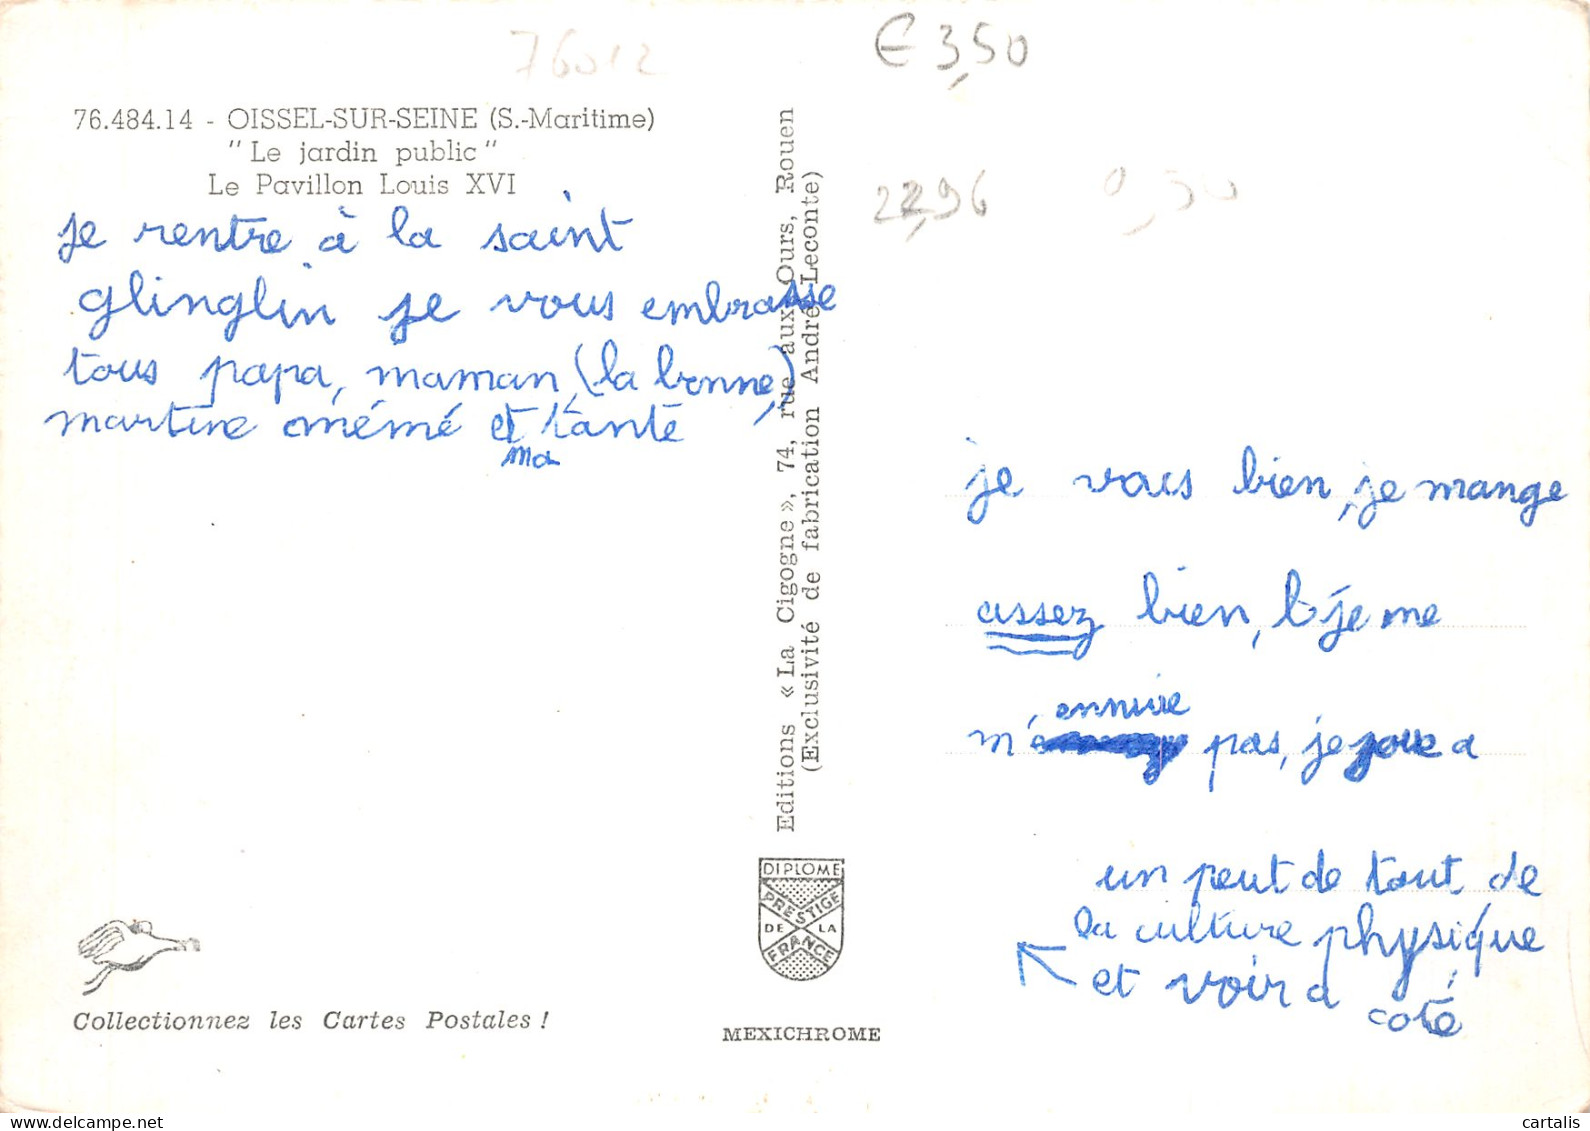 76012
€ 3,50
76.484.14 - OISSEL-SUR-SEINE (S.-Maritime)
" Le jardin public "
Le Pavillon Louis XVI
22,96 0,50
je rentre à la saint
glinglin je vous embrasse
tous papa, maman, (la bonne,)
martine mémé et tante
ma
Editions « La Cigogne », 74, rue aux Ours, Rouen
(Exclusivité de fabrication André Leconte)
je vais bien, je mange
assez bien, je me
ennuie
m' pas, je joue a
un peut de tout, de
la culture physique
et voir a coté
DIPLOME
PRESTIGE
DE LA
FRANCE
Collectionnez les Cartes Postales !
MEXICHROME
delcampe.net
cartalis